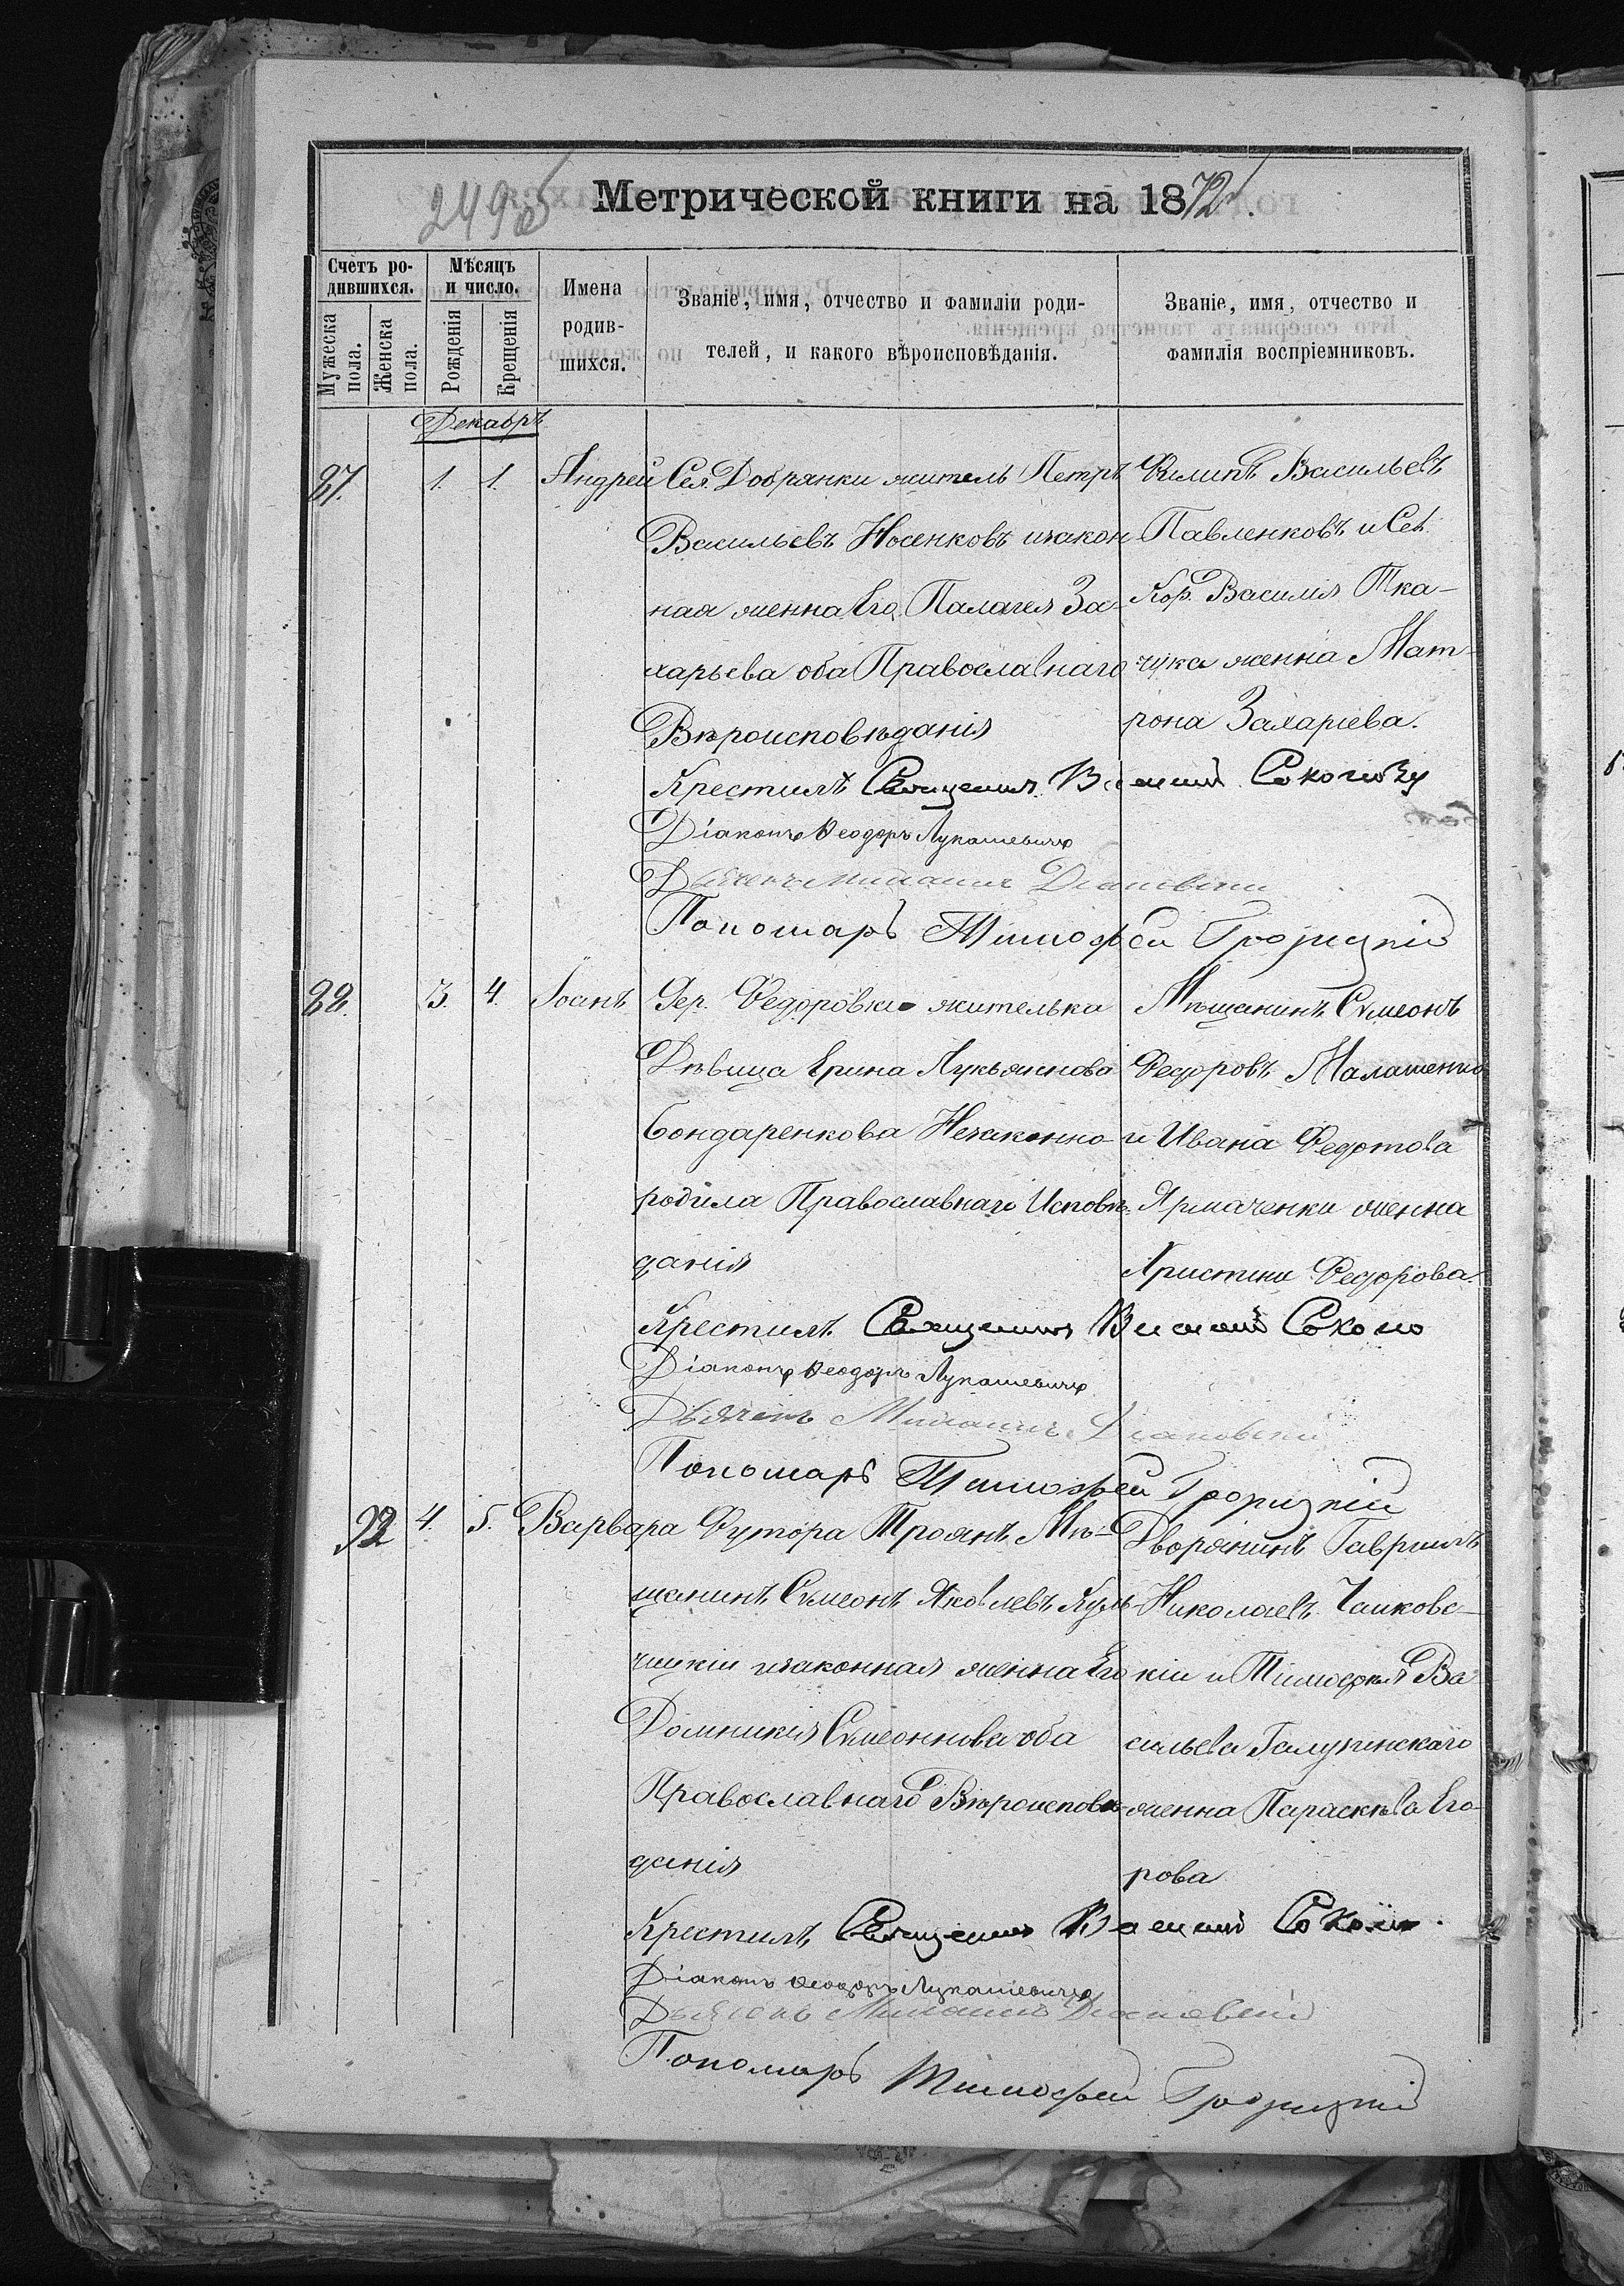 249об
Метрической книги на 1872 г.
Счетъ ро-
дившихся.
Мѣсяцъ
и число.
Мужеска
пола.
Женска
пола.
Рожденія
Крещенія
Имена
родив-
шихся.
Званіе, имя, отчество и фамиліи роди-
телей, и какого вѣроисповѣданія.
Званіе, имя, отчество и
фамилія воспріемниковъ.
Декабрь
87. 1. 1. Андрей
Сел. Добрянки житель Петръ
Васильевъ Носенковъ изакон
ная женна Его Палагея За-
харьева оба Православнаго
Вѣроисповѣданія
Филипъ Васильевъ
Павленковъ и Сел.
Кор. Василія Тка-
чука женна Мат-
рона Захаріева.
Крестилъ Священникъ Василий
Діаконъ Ѳеодоръ Лукашевичъ
Дьячекъ Михаилъ
Пономарь Тимофей
88. 3. 4. Іоанъ
Дер. Федоровки жителька
Дѣвица Ерина Лукьяннова
Бондаренкова Незаконно
родила Православнаго Исповѣ-
данія
Мѣщанинъ Сѵмеонъ
Федоровъ Малашенко
и Ивана Федотова
Ярмаченки женна
Христина Федорова.
Крестилъ Священникъ Василий
Діаконъ Ѳеодоръ Лукашевичъ
Дьячекъ Михаилъ
Пономарь Тимофей
92 4. 5. Варвара
Футора Троянъ Мѣ-
щанинъ Сѵмеонъ Яковлевъ Куль-
чицкіи изаконная женна Его
Домникія Сѵмеоннова оба
Православнаго Вѣроисповѣ-
данія
Дворянинъ Гавріилъ
Николаевъ Чайковс-
кіи и Тимофея Ва
сильева Галузинскаго
женна Параскѣва Его-
рова
Крестилъ Священникъ Василий
Діаконъ Ѳеодоръ Лукашевичъ
Дьячекъ Михаилъ
Пономарь Тимофей